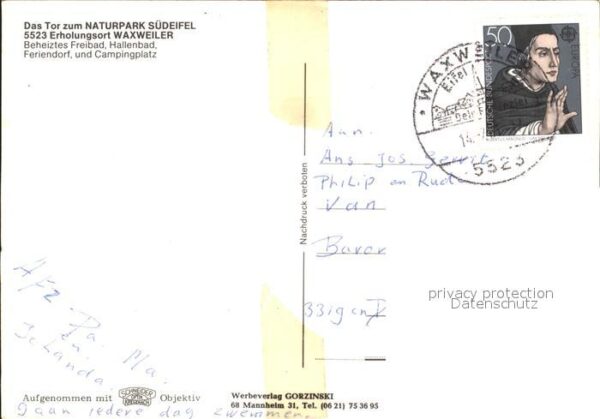 Das Tor zum NATURPARK SÜDEIFEL
5523 Erholungsort WAXWEILER
Beheiztes Freibad, Hallenbad,
Feriendorf, und Campingplatz
50
EUROPA
DEUTSCHE BUNDESPOST
WAXWEILER
Eifel
5523
Aan.
Ans Jos. Gerrit
Philip en Rudi
Van
Nachdruck verboten
privacy protection
Datenschutz
Afz. Pa.
en. Ma.
Aufgenommen mit SCHNEIDER KREUZNACH Objektiv
gaan iedere dag zwemmen.
Werbeverlag GORZINSKI
68 Mannheim 31, Tel. (06 21) 75 36 95